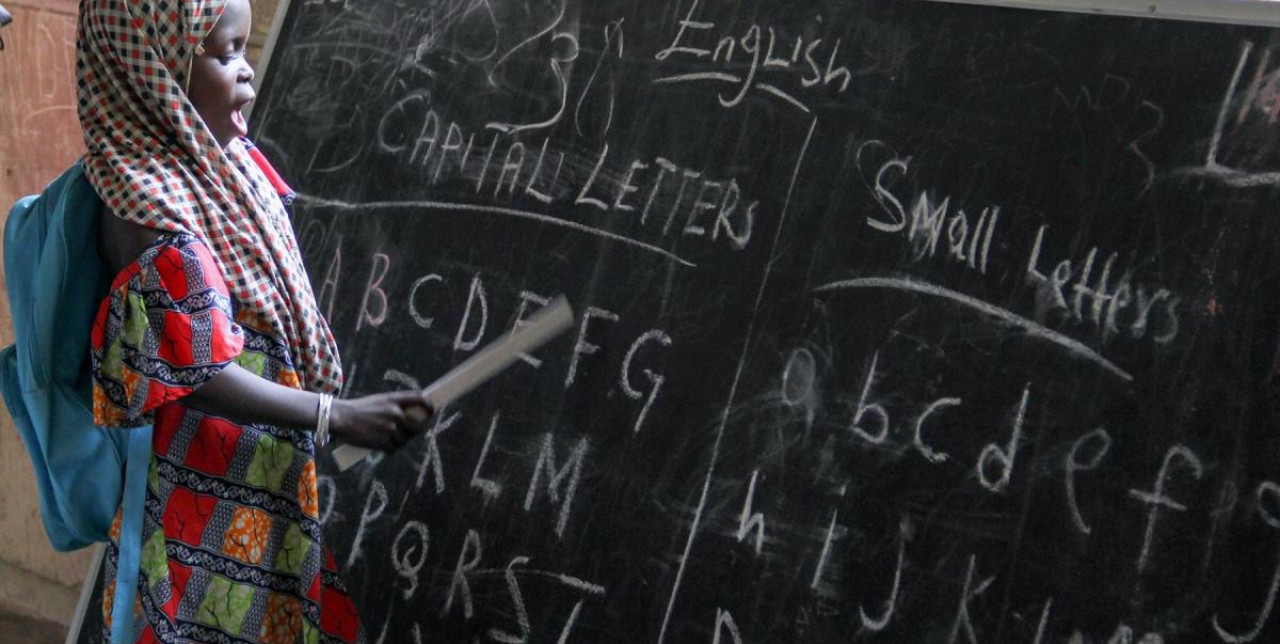 English
CAPITALL LETTERS
A B C D E F G
K L M
P Q R S T
Small Letters
a b c d e f g
h i j k l